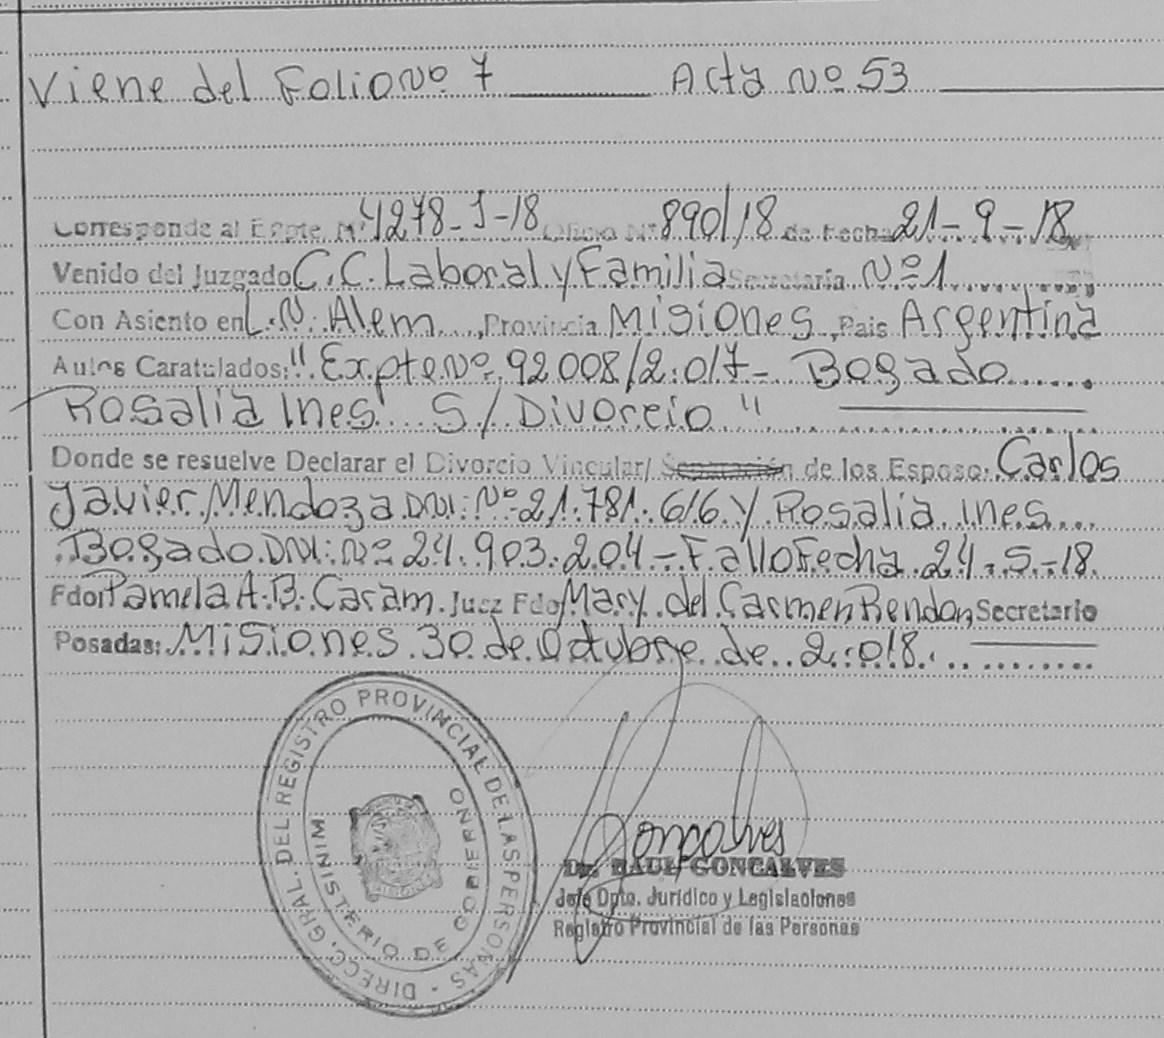 Viene del Folio Nº 7 ______ Acta Nº 53 ______
Corresponde al Expte. Nº 4278-J-18 Oficio Nº 890/18 de Fecha 21-9-18
Venido del Juzgado C.C. Laboral y Familia Secretaría Nº 1
Con Asiento en L.N. Alem, Provincia Misiones, Pais Argentina
Autos Caratulados: "Expte Nº 92008/2.017- Bogado
Rosalia Ines S/ Divorcio"
Donde se resuelve Declarar el Divorcio Vincular/ Separación de los Esposo: Carlos
Javier Mendoza DNI: Nº 21.781.616 y Rosalia Ines
Bogado DNI: Nº 24.903.204 - Fallo Fecha 24-5-18.
Fdo: Pamela A.B. Caram. Juez Fdo Mary del Carmen Rendon, Secretario
Posadas: Misiones 30 de Octubre de 2.018.
DIRECC. GRAL. DEL REGISTRO PROVINCIAL DE LAS PERSONAS -
MINISTERIO DE GOBIERNO
Goncalves
Dr. RAUL GONCALVES
Jefe Dpto. Jurídico y Legislaciones
Registro Provincial de las Personas